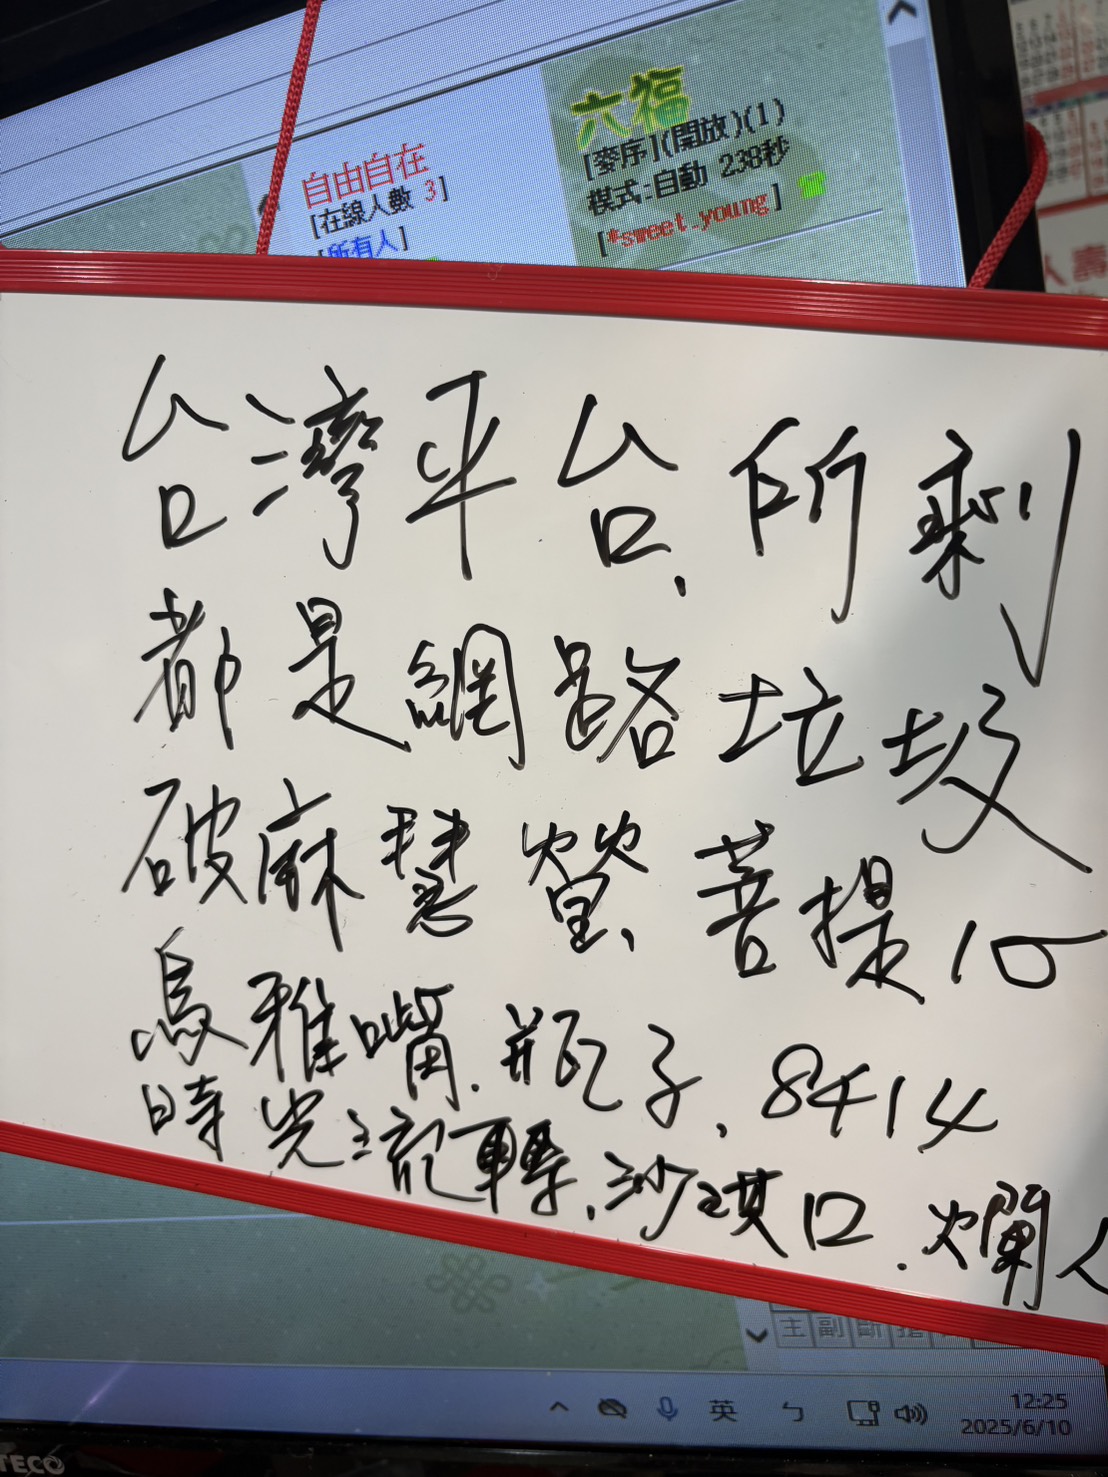 六福
[麥序](開放)(1)
模式:自動 238秒
[*sweet.young]
自由自在
[在線人數 3]
[所有人]
人壽
台灣平台、所剩
都是網路垃圾
破麻慧螢、菩提心
烏雅嘴、瓶子、8414
時光流轉、沙琪口、爛人
主 副 斷
英
ㄅ
12:25
2025/6/10
TECO